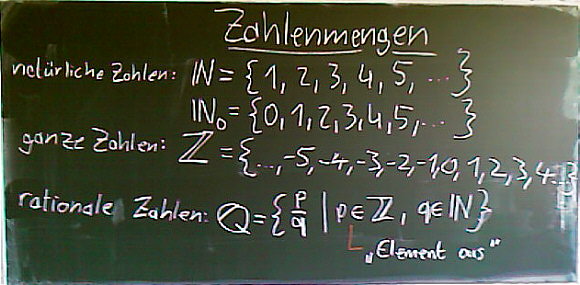 Zahlenmengen
natürliche Zahlen: ℕ = {1, 2, 3, 4, 5, ...}
ℕ₀ = {0, 1, 2, 3, 4, 5, ...}
ganze Zahlen: ℤ = {..., -5, -4, -3, -2, -1, 0, 1, 2, 3, 4...}
rationale Zahlen: ℚ = {p/q | p ∈ ℤ, q ∈ ℕ}
„Element aus"